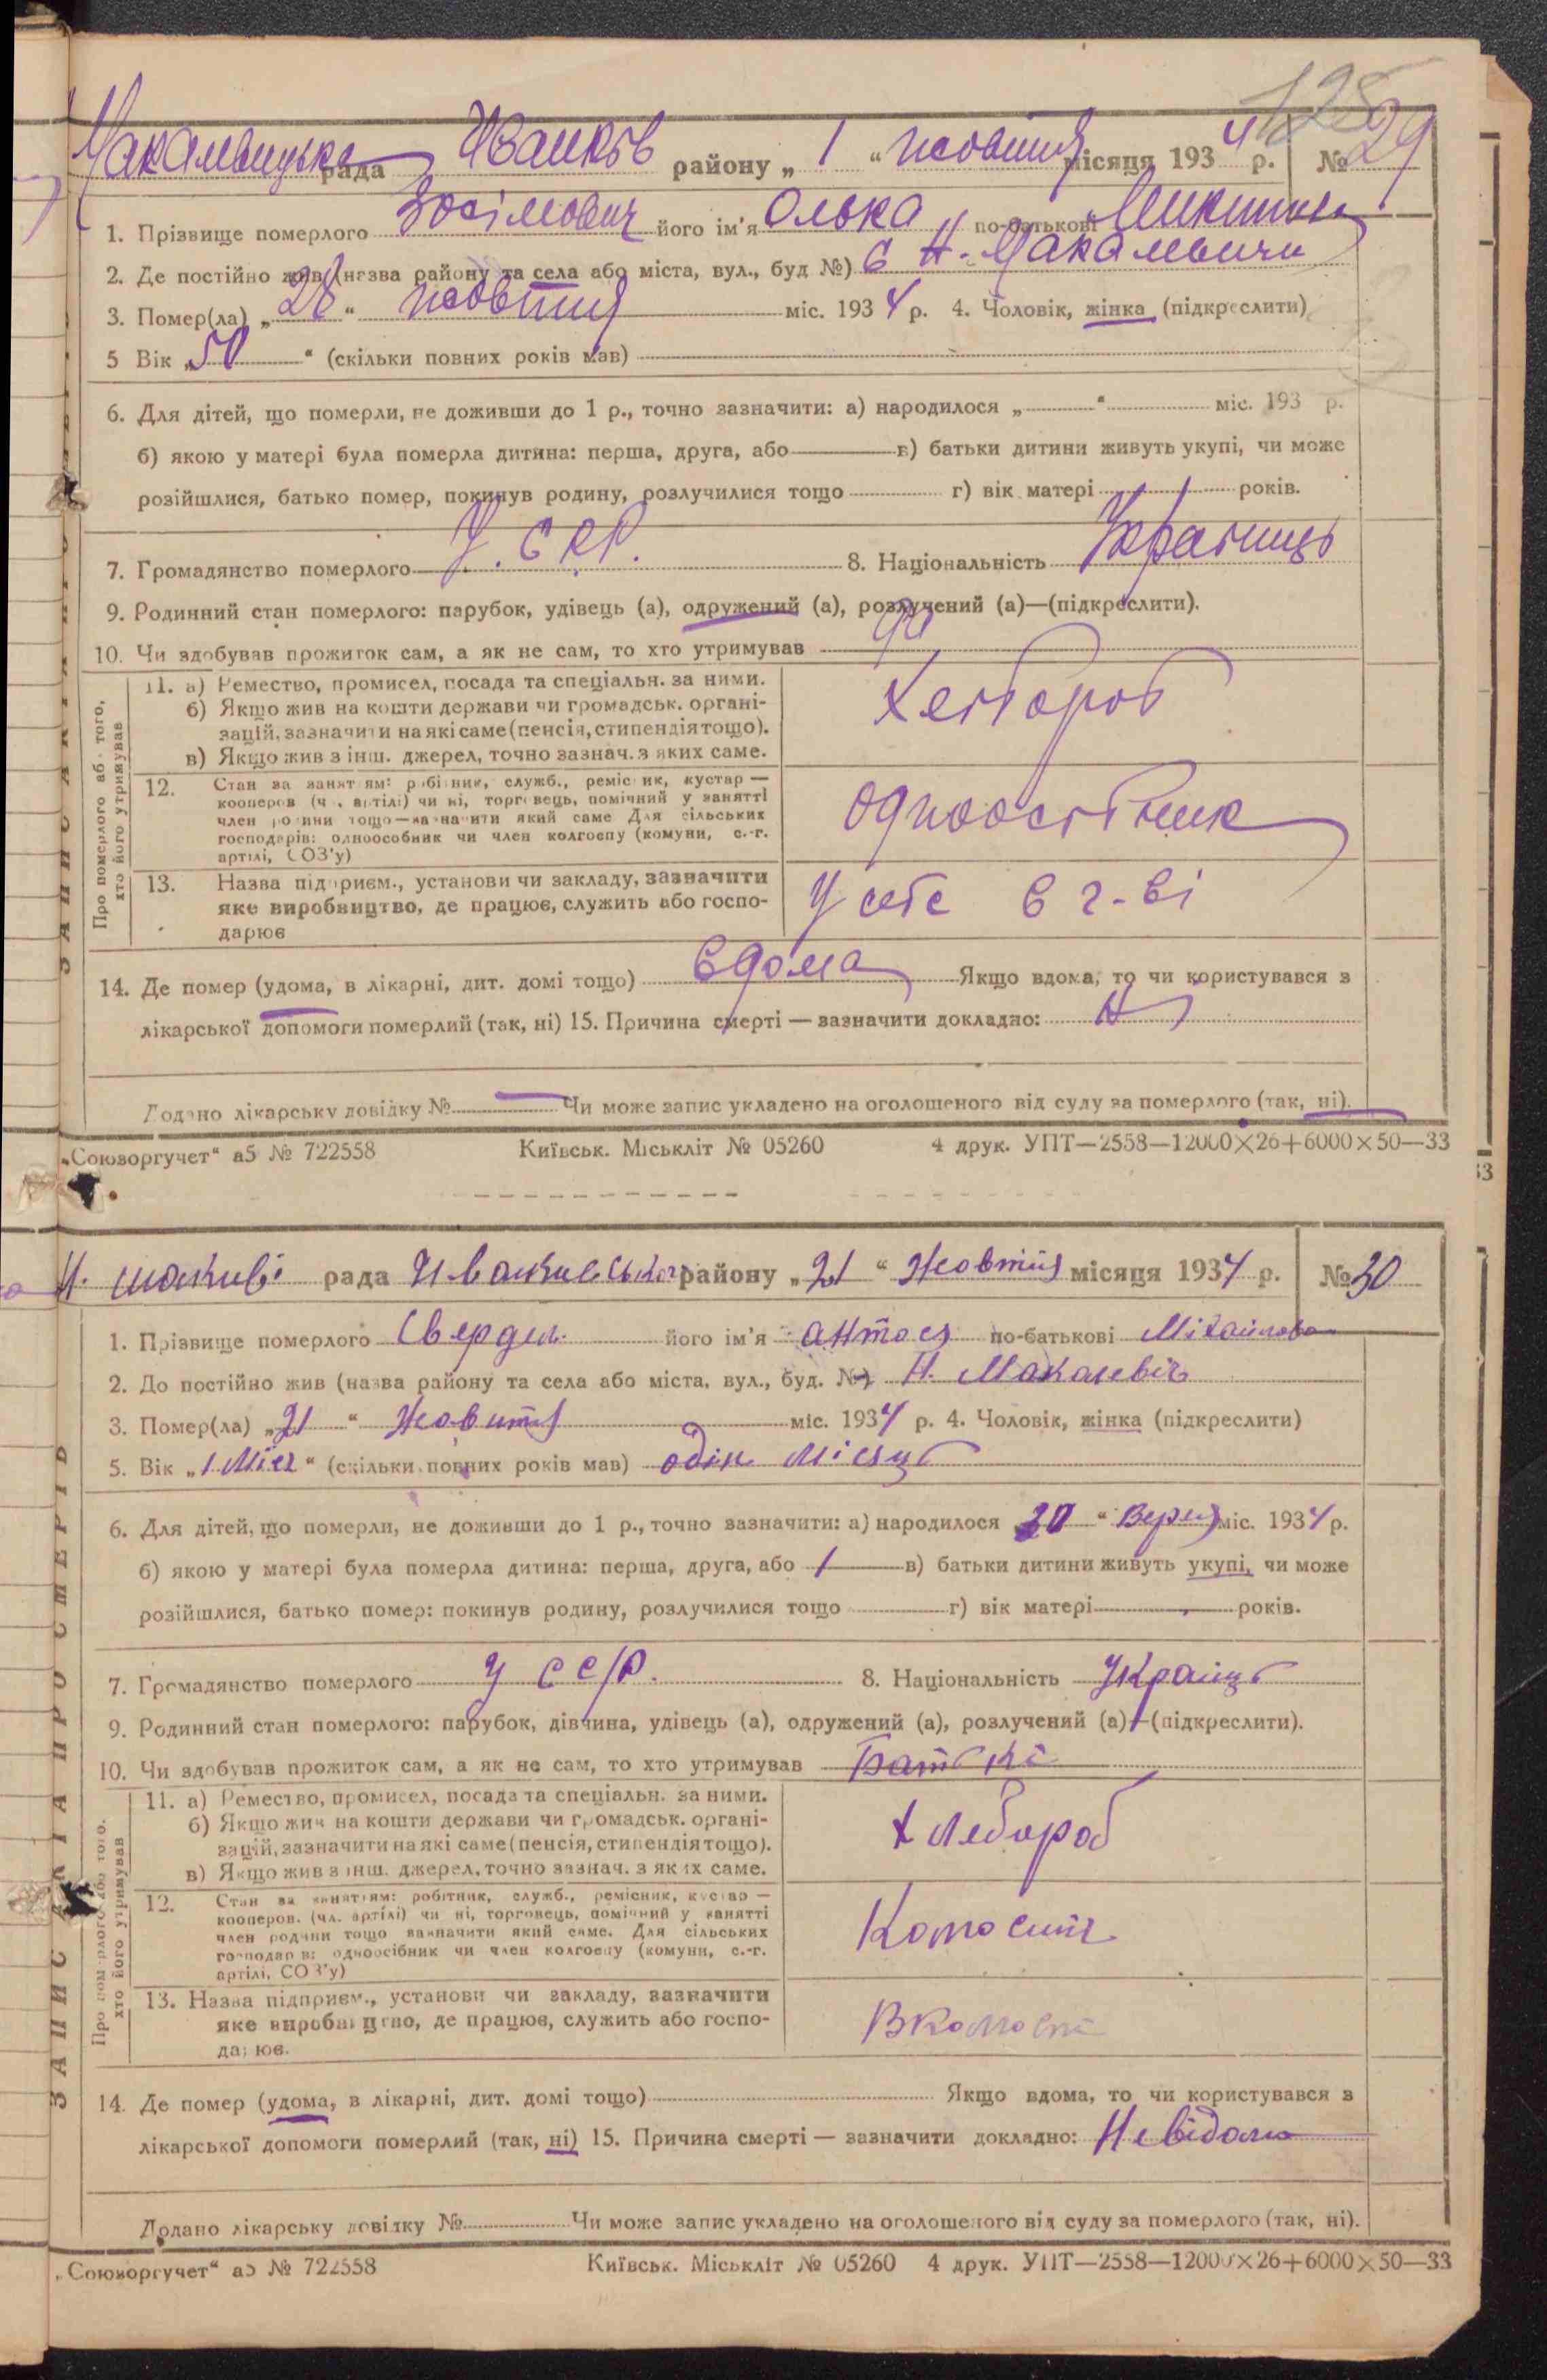 128
Макалевицька рада Иванків району „ 1 “ жовтня місяця 1934 р. № 29
1. Прізвище померлого Зосімович його ім'я Олька по-батькові Микитин
2. Де постійно жив (назва району та села або міста, вул., буд №) с Н-Макалевичи
3. Помер(ла) „ 28 “ жовтня міс. 1934 р. 4. Чоловік, жінка (підкреслити)
5 Вік „ 50 “ (скільки повних років мав)
6. Для дітей, що померли, не доживши до 1 р., точно зазначити: а) народилося „ “ міс. 193 р.
б) якою у матері була померла дитина: перша, друга, або в) батьки дитини живуть укупі, чи може
розійшлися, батько помер, покинув родину, розлучилися тощо г) вік матері років.
7. Громадянство померлого У.СРР. 8. Національність Українць
9. Родинний стан померлого: парубок, удівець (а), одружений (а), розлучений (а)—(підкреслити).
10. Чи здобував прожиток сам, а як не сам, то хто утримував да
Про померлого або того,
хто його утримував
11. а) Ремество, промисел, посада та спеціальн. за ними.
б) Якщо жив на кошти держави чи громадськ. органі-
зацій, зазначити на які саме (пенсія, стипендія тощо).
в) Якщо жив з інш. джерел, точно зазнач. з яких саме.
Хлебороб
12. Стан за заняттям: робітник, служб., ремісник, кустар —
кооперов (чл. артілі) чи ні, торговець, помічний у занятті
член родини тощо—зазначити який саме Для сільських
господарів: одноособник чи член колгоспу (комуни, с.-г.
артілі, СОЗ'у)
13. Назва підприєм., установи чи закладу, зазначити
яке виробництво, де працює, служить або госпо-
дарює
У себе в г-ві
14. Де помер (удома, в лікарні, дит. домі тощо) вдома Якщо вдома, то чи користувався з
лікарської допомоги померлий (так, ні) 15. Причина смерті — зазначити докладно:
Додано лікарську довідку № Чи може запис укладено на оголошеного від суду за померлого (так, ні).
„Союзоргучет“ а5 № 722558 Київськ. Міськліт № 05260 4 друк. УПТ—2558—12000×26+6000×50—33
ЗАПИС АКТА ПРО СМЕРТЬ
рада району „ 21 “ Жовтня місяця 1934 р. № 30
1. Прізвище померлого Свердел. його ім'я Антося по-батькові Міхайлова
2. До постійно жив (назва району та села або міста, вул., буд. №) Н. Макалевіч
3. Помер(ла) „ 21 “ Жовтня міс. 1934 р. 4. Чоловік, жінка (підкреслити)
5. Вік „ 1 Міся “ (скільки повних років мав) одін Місяць
6. Для дітей, що померли, не доживши до 1 р., точно зазначити: а) народилося 20 “ Верня міс. 1934 р.
б) якою у матері була померла дитина: перша, друга, або 1 в) батьки дитини живуть укупі, чи може
розійшлися, батько помер: покинув родину, розлучилися тощо г) вік матері років.
7. Громадянство померлого УССР. 8. Національність Українць
9. Родинний стан померлого: парубок, дівчина, удівець (а), одружений (а), розлучений (а)—(підкреслити).
10. Чи здобував прожиток сам, а як не сам, то хто утримував Батькі
Про померлого або того.
хто його утримував
11. а) Ремество, промисел, посада та спеціальн. за ними.
б) Якщо жив на кошти держави чи громадськ. органі-
зацій, зазначити на які саме (пенсія, стипендія тощо).
в) Якщо жив з інш. джерел, точно зазнач. з яких саме.
Хлебороб
12. Стан за заняттям: робітник, служб., ремісник, кустар —
кооперов. (чл. артілі) чи ні, торговець, помічний у занятті
член родини тощо зазначити який саме. Для сільських
господарів: одноосібник чи член колгоспу (комуни, с.-г.
артілі, СОЗ'у)
13. Назва підприєм., установи чи закладу, зазначити
яке виробництво, де працює, служить або госпо-
дарює.
14. Де помер (удома, в лікарні, дит. домі тощо) Якщо вдома, то чи користувався з
лікарської допомоги померлий (так, ні) 15. Причина смерті — зазначити докладно: Невідома
Додано лікарську довідку № Чи може запис укладено на оголошеного від суду за померлого (так, ні).
„Союзоргучет“ а5 № 722558 Київськ. Міськліт № 05260 4 друк. УПТ—2558—12000×26+6000×50—33
ЗАПИС АКТА ПРО СМЕРТЬ